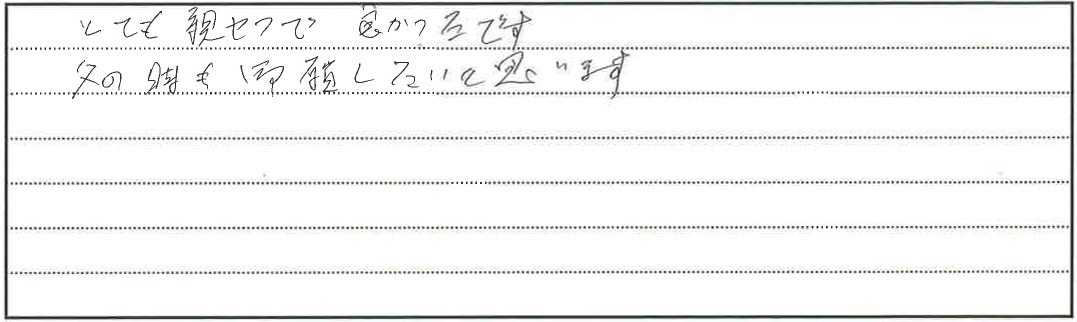 とても親セツで良かったです
父の時も御願したいと思います